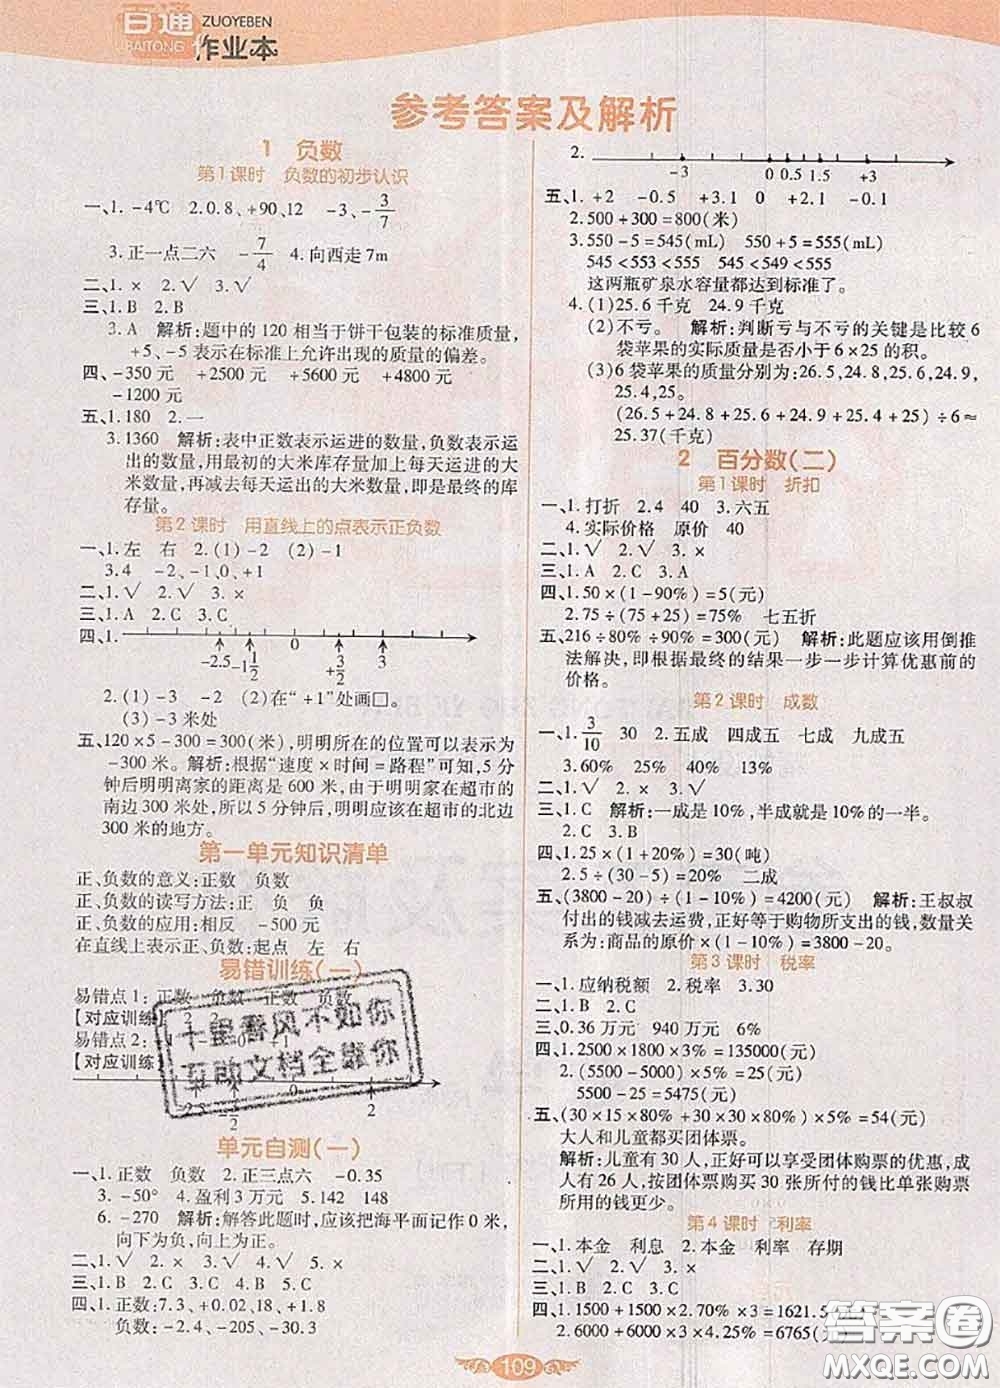 百通
BAITONG
ZUOYEBEN
作业本
参考答案及解析
1 负数
第1课时 负数的初步认识
一、1. -4℃ 2. 0.8、+90、12 -3、-3/7
3. 正一点二六 -7/4 4. 向西走7m
二、1. × 2. √ 3. √
三、1. B 2. B
3. A 解析:题中的120相当于饼干包装的标准质量,
+5、-5表示在标准上允许出现的质量的偏差。
四、-350元 +2500元 +5600元 +4800元
-1200元
五、1. 180 2. 一
3. 1360 解析:表中正数表示运进的数量,负数表示运
出的数量,用最初的大米库存量加上每天运进的大
米数量,再减去每天运出的大米数量,即是最终的库
存量。
第2课时 用直线上的点表示正负数
一、1. 左 右 2. (1) -2 (2) -1
3. 4 -2、-1、0、+1
二、1. √ 2. √ 3. ×
三、1. A 2. C 3. C
四、1.
0
-2.5 -1 1/2 +3/2 +3
2. (1) -3 -2 (2) 在“+1”处画□。
(3) -3米处
五、120×5-300=300(米),明明所在的位置可以表示为
-300米。解析:根据“速度×时间=路程”可知,5分
钟后明明离家的距离是600米,由于明明家在超市的
南边300米处,所以5分钟后,明明应该在超市的北边
300米的地方。
第一单元知识清单
正、负数的意义:正数 负数
正、负数的读写方法:正 负 负
正、负数的应用:相反 -500元
在直线上表示正、负数:起点 左 右
易错训练(一)
易错点1:正数 负数 正数 负数
【对应训练】 2 2
易错点2:
【对应训练】
0
2
十里香风不如你
互助文档全靠你
单元自测(一)
一、1. 正数 负数 2. 正三点六 -0.35
3. -50° 4. 盈利3万元 5. 142 148
6. -270 解析:解答此题时,应该把海平面记作0米,
向下为负,向上为正。
二、1. √ 2. × 3. × 4. √ 5. ×
三、1. B 2. C 3. B 4. B 5. C
四、1. 正数:7.3、+0.02、18、+1.8
负数:-2.4、-205、-30.3
2.
-3 0 0.5 1.5 +3
五、1. +2 -0.5 +3.1 0 +2.1 -0.1
2. 500+300=800(米)
3. 550-5=545(mL) 550+5=555(mL)
545<553<555 545<549<555
这两瓶矿泉水容量都达到标准了。
4. (1) 25.6千克 24.9千克
(2) 不亏。 解析:判断亏与不亏的关键是比较6
袋苹果的实际质量是否小于6×25的积。
(3) 6袋苹果的质量分别为:26.5,24.8,25.6,24.9,
25,25.4。
(26.5+24.8+25.6+24.9+25.4+25)÷6≈
25.37(千克)
2 百分数(二)
第1课时 折扣
一、1. 打折 2. 4 40 3. 六五
4. 实际价格 原价 40
二、1. √ 2. √ 3. ×
三、1. A 2. C 3. A
四、1. 50×(1-90%)=5(元)
2. 75÷(75+25)=75% 七五折
五、216÷80%÷90%=300(元) 解析:此题应该用倒推
法解决,即根据最终的结果一步一步计算优惠前的
价格。
第2课时 成数
一、1. 3/10 30 2. 五成 四成五 七成 九成五
3. 60% 25% 40% 13%
二、1. √ 2. × 3. ×
三、1. C 解析:一成是10%,半成就是10%的一半。
2. C 3. B
四、1. 25×(1+20%)=30(吨)
2. 5÷(30-5)=20% 二成
五、(3800-20)÷(1-10%)=4200(元) 解析:王叔叔
付出的钱减去运费,正好等于购物所支出的钱,数量
关系为:商品的原价×(1-10%)=3800-20。
第3课时 税率
一、1. 应纳税额 2. 税率 3. 30
二、1. B 2. B 3. C
三、0.36万元 940万元 6%
四、1. 2500×1800×3%=135000(元)
2. (5500-5000)×5%=25(元)
5500-25=5475(元)
五、(30×15×80%+30×30×80%)×5%=54(元)
大人和儿童都买团体票。
解析:儿童有30人,正好可以享受团体购票的优惠,成
人有26人,按团体票购买30张所付的钱比单张购票
所用的钱更少。
第4课时 利率
一、1. 本金 利息 2. 本金 利率 存期
二、1. × 2. √ 3. √
三、1. B 2. C 3. C
四、1. 1500+1500×2.70%×3=1621.5(元)
2. 6000+6000×
×3=6765(元)
109
答案圈
MXQE.COM